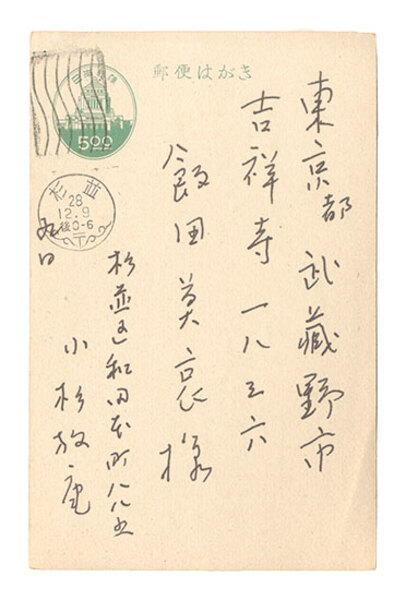 郵便はがき
日本郵便
500
東京都武蔵野市
吉祥寺一八三六
飯田莫哀様
杉並区和田本町八八五
小杉放庵
九日
杉並
28
12.9
後0-6